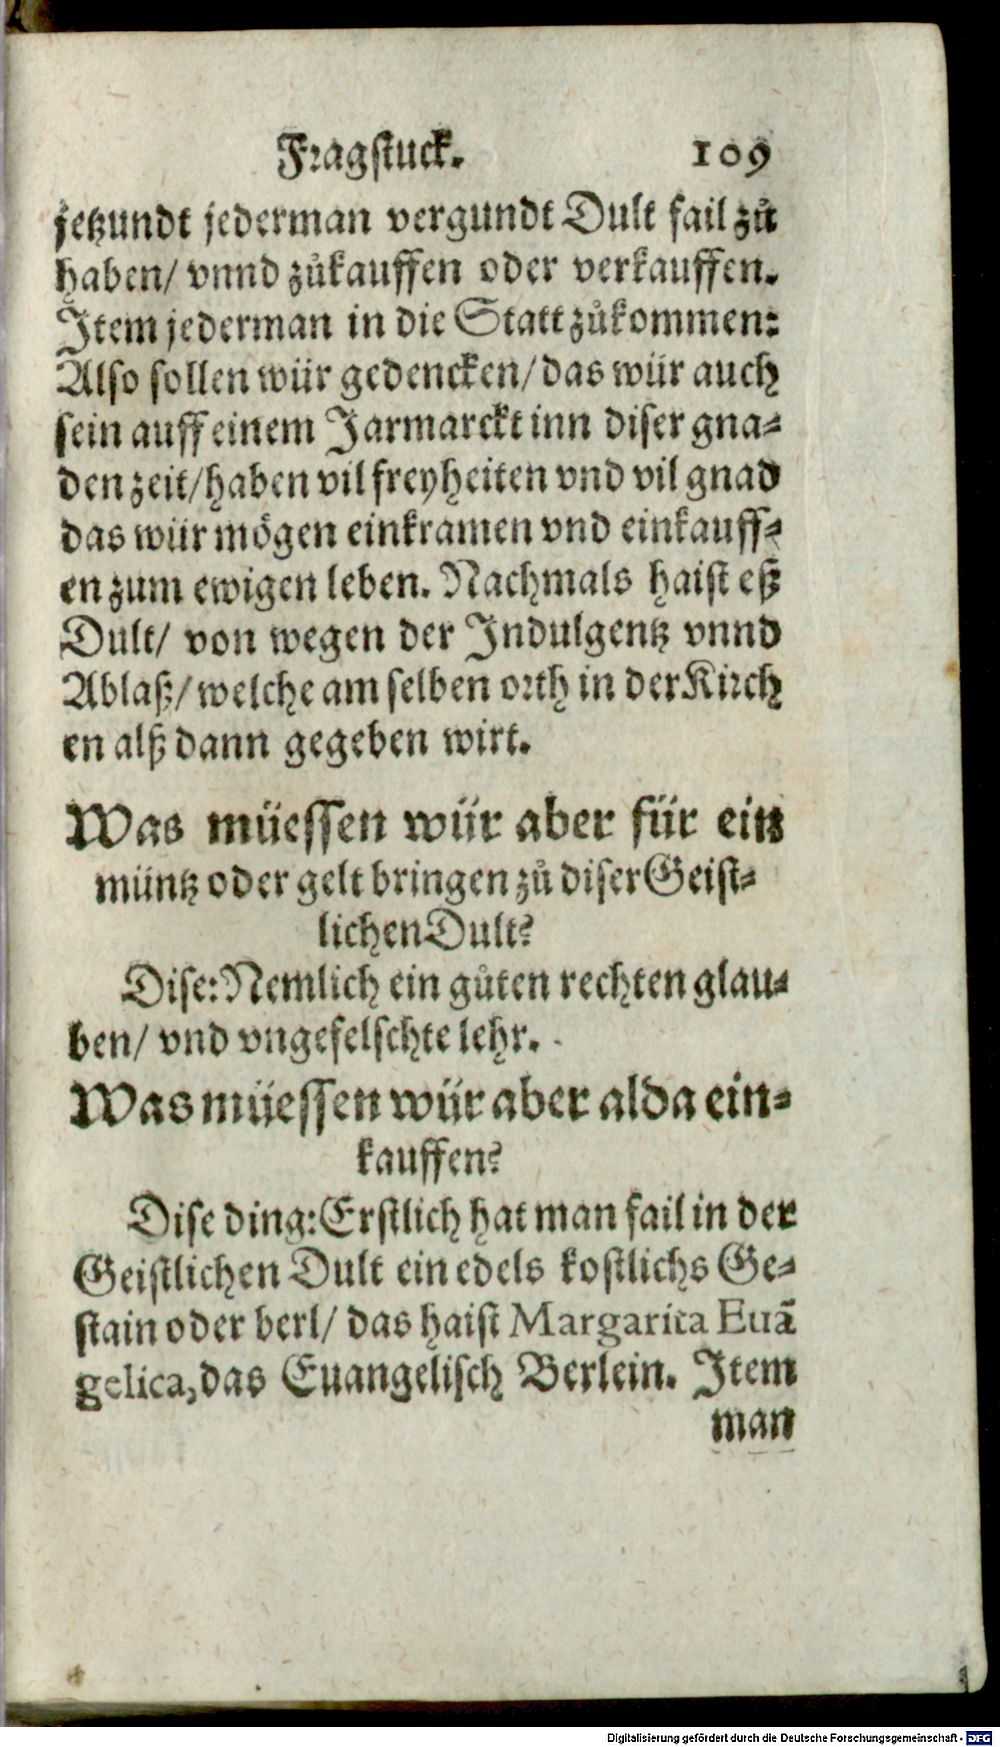 Fragstuck. 109
jetzundt jederman vergundt Dult fail zů
haben/ vnnd zůkauffen oder verkauffen.
Item jederman in die Statt zůkommen:
Also sollen wür gedencken/ das wür auch
sein auff einem Jarmarckt inn diser gna-
den zeit/ haben vil freyheiten vnd vil gnad
das wür mögen einkramen vnd einkauff-
en zum ewigen leben. Nachmals haist eß
Dult/ von wegen der Indulgentz vnnd
Ablaß/ welche am selben orth in der Kirch
en alß dann gegeben wirt.
Was müessen wür aber für ein
müntz oder gelt bringen zů diser Geist-
lichen Dult?
Dise: Nemlich ein gůten rechten glau-
ben/ vnd vngefelschte lehr.
Was müessen wür aber alda ein-
kauffen?
Dise ding: Erstlich hat man fail in der
Geistlichen Dult ein edels kostlichs Ge-
stain oder berl/ das haist Margarita Euā
gelica, das Euangelisch Berlein. Item
man
Digitalisierung gefördert durch die Deutsche Forschungsgemeinschaft - DFG